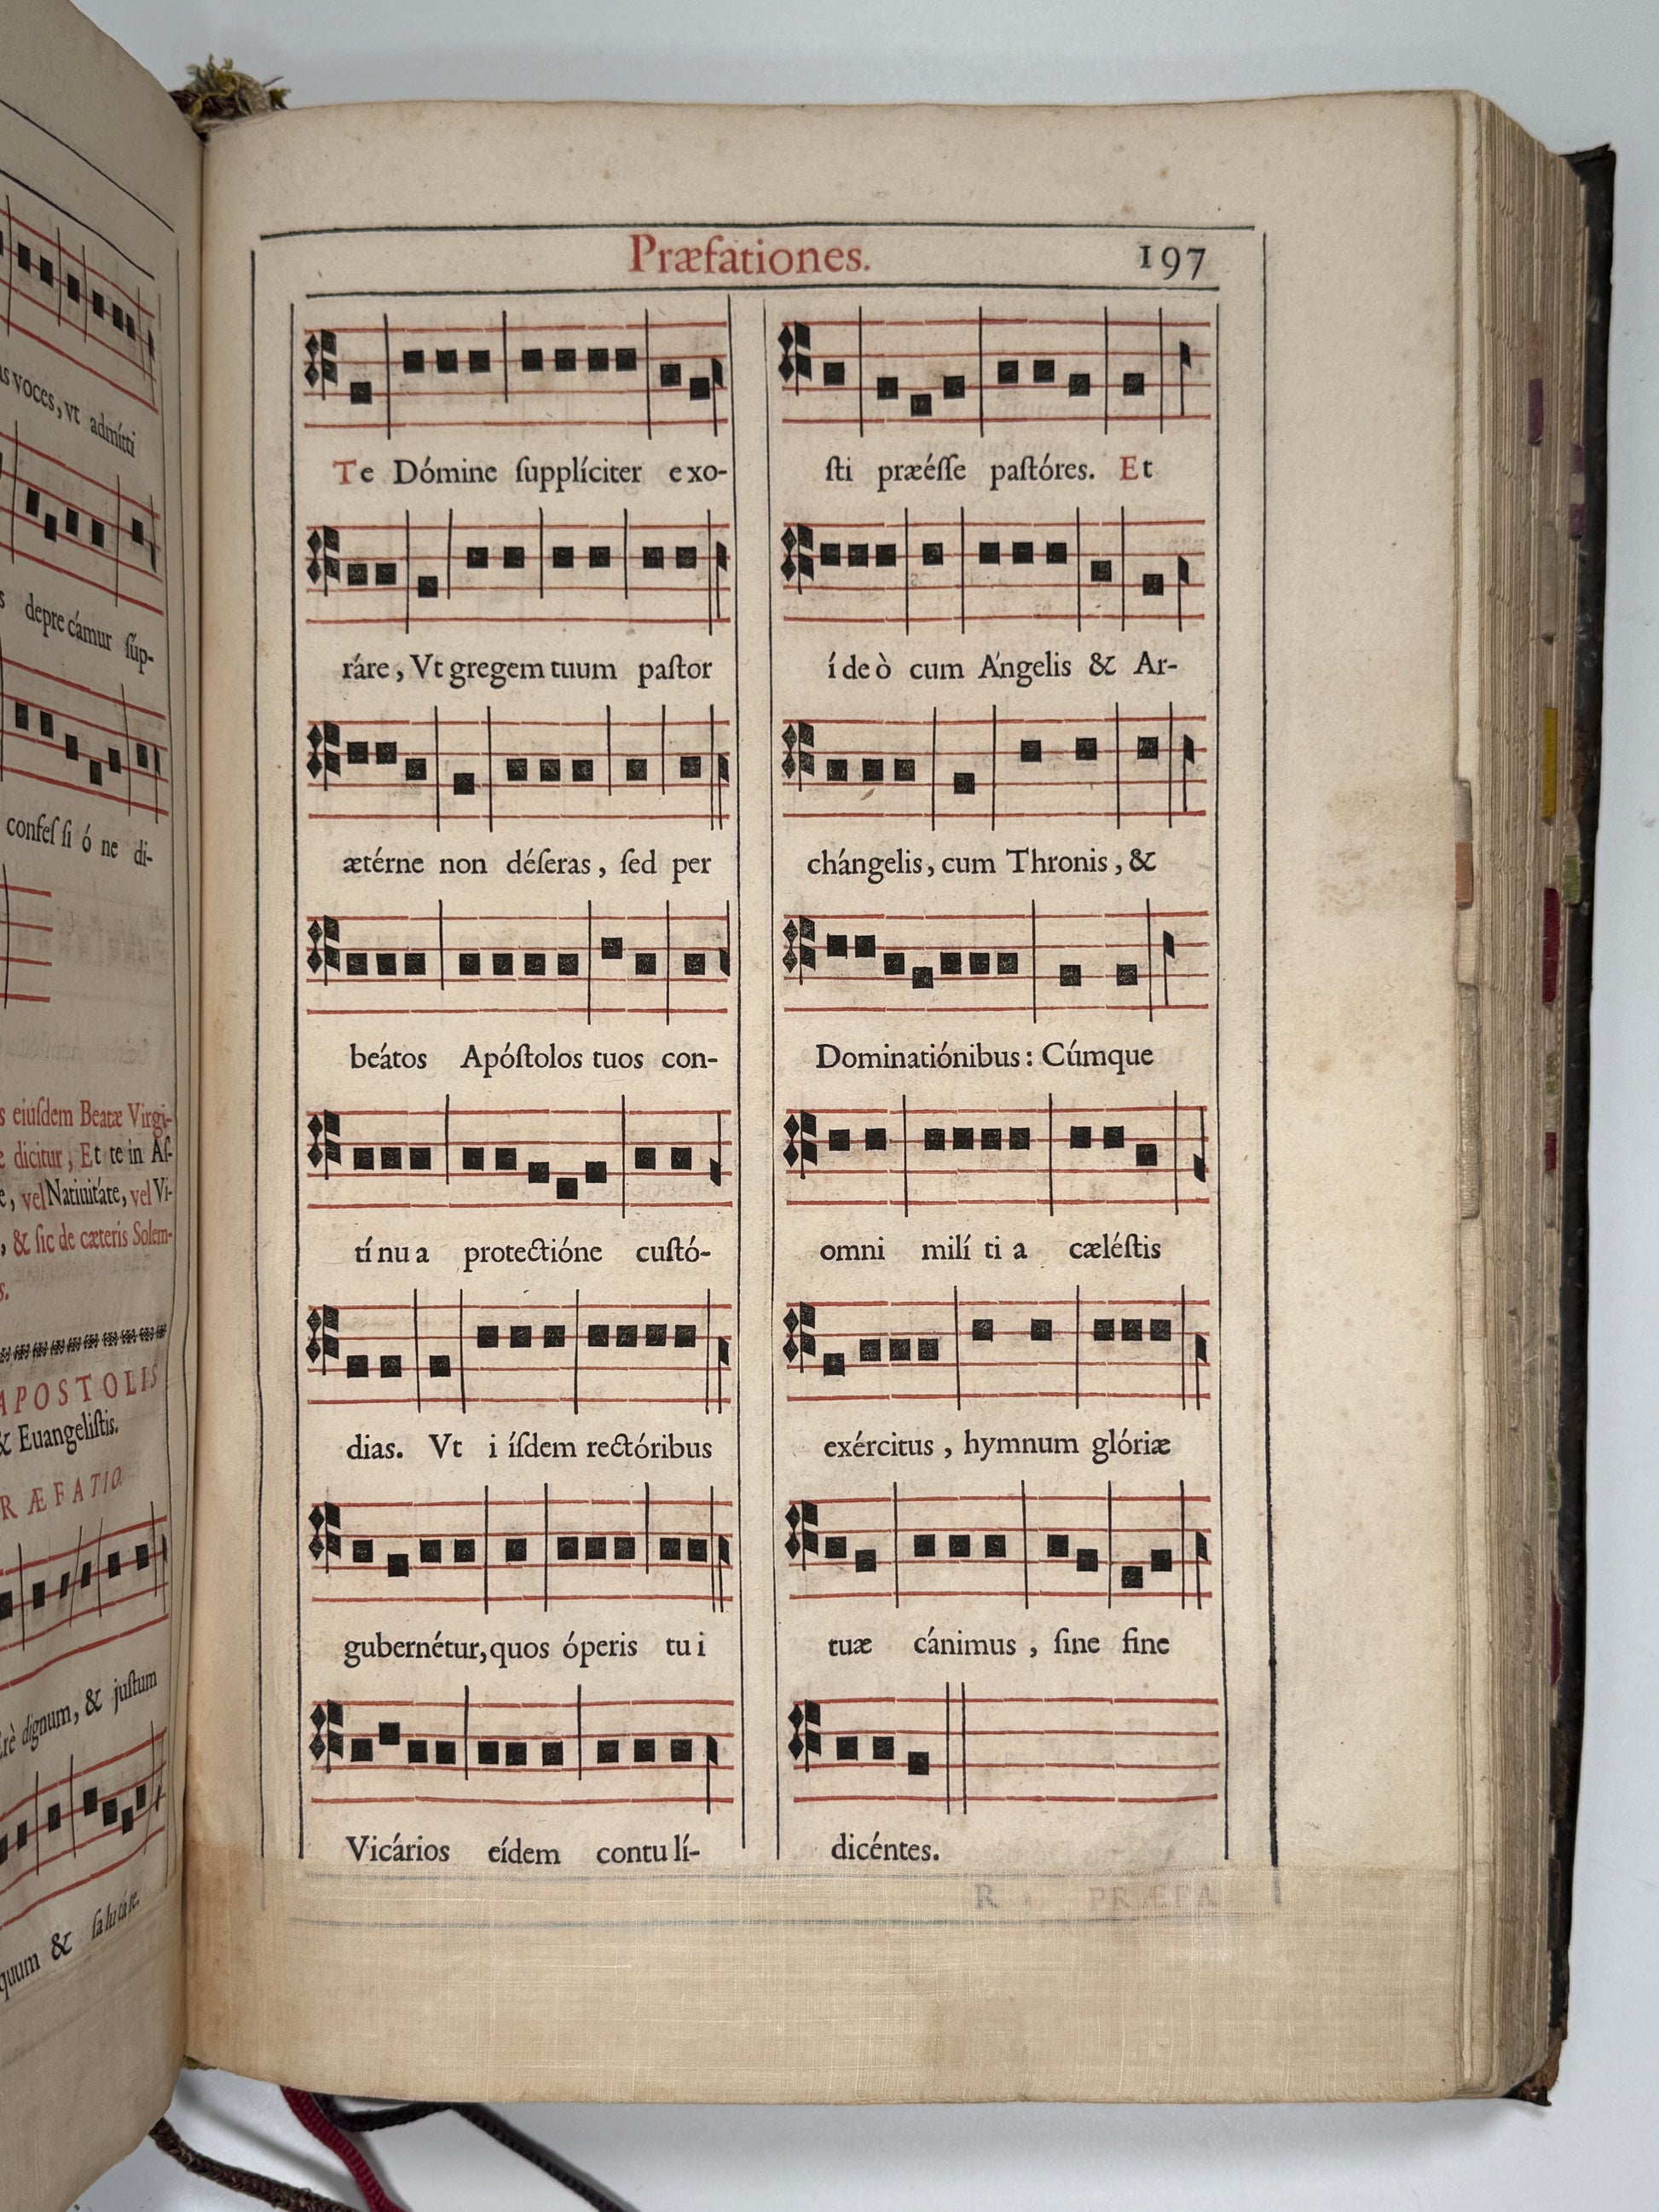 as voces, vt admítti
deprecámur ſúp-
confeſſi ó ne di-
s eiuſdem Beatæ Virgi-
e dicitur, Et te in Aſ-
e, vel Natiuitáte, vel Vi-
, & ſic de cæteris Solem-
s.
APOSTOLIS
& Euangeliſtis.
RÆFATIO.
rè dignum, & juſtum
quum & ſalutáre.
Præfationes. 197
Te Dómine ſupplíciter exo-
ráre, Vt gregem tuum paſtor
ætérne non déſeras, ſed per
beátos Apóſtolos tuos con-
tí nu a protectióne cuſtó-
dias. Vt i íſdem rectóribus
gubernétur, quos óperis tu i
Vicários eídem contu lí-
ſti præéſſe paſtóres. Et
í de ò cum Angelis & Ar-
chángelis, cum Thronis, &
Dominatiónibus: Cúmque
omni milí ti a cæléſtis
exércitus, hymnum glóriæ
tuæ cánimus, ſine fine
dicéntes.
R PRÆFA